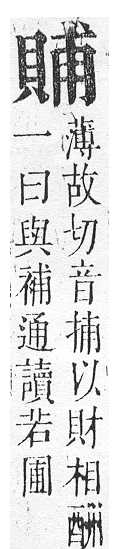 薄故切音捕以財相酬
一曰與補通讀若圃